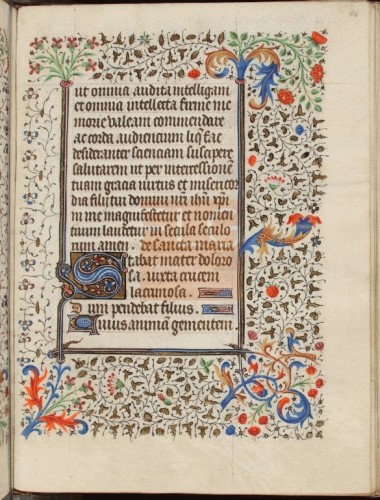 ut omnia audita intelligam
et omnia intellecta firme me
morie valeam commendare
ac corda audiencium
desideranter scienciam suscipere
salutarem ut per intercessione
tuam gracia virtus et misericor
dia filii tui domini nri ihu xpi
in me magnificetur et nomen
tuum laudetur in secula seculo
rum amen. de sancta maria
Stabat mater doloro
sa. iuxta crucem
lacrimosa.
Dum pendebat filius.
Cuius animam gementem.